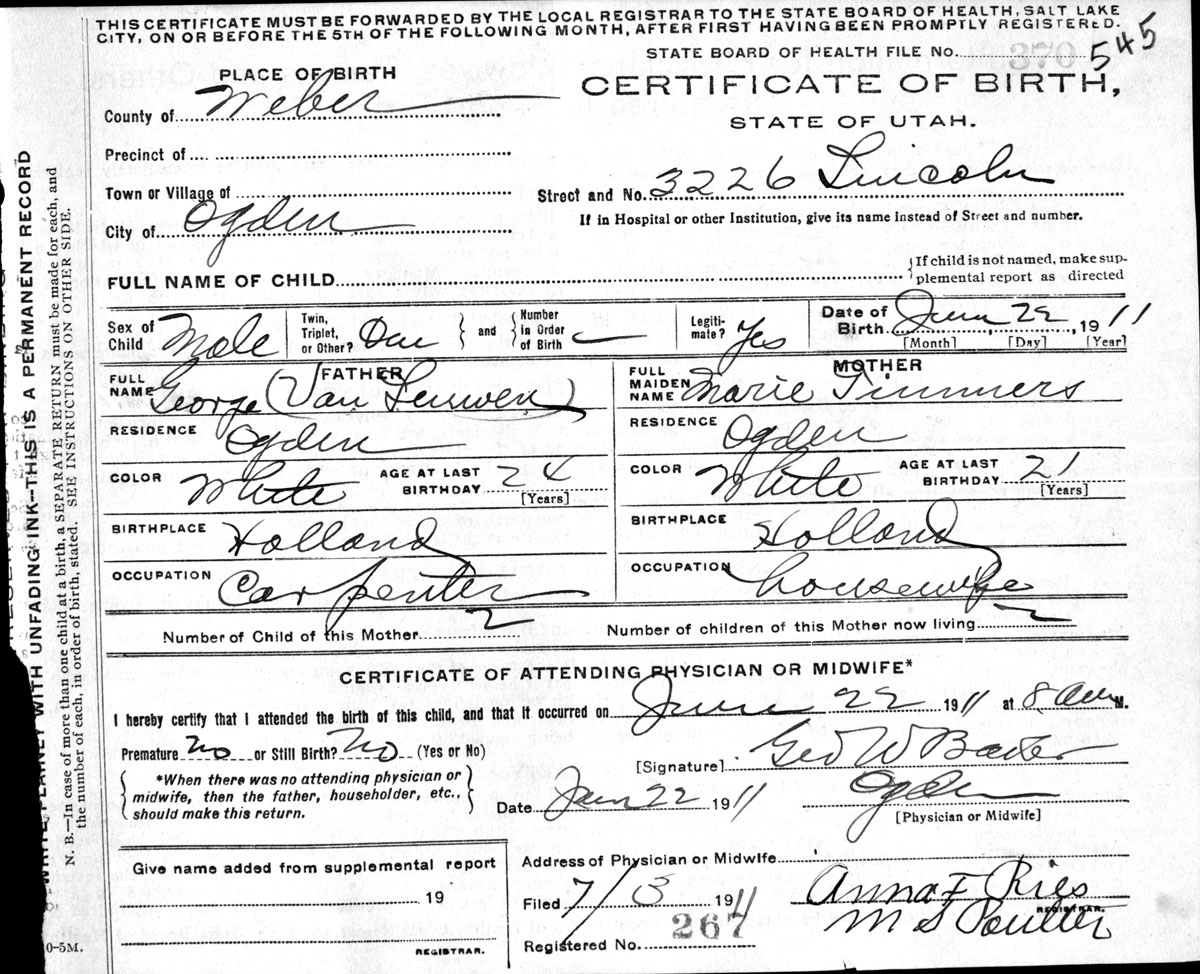 THIS CERTIFICATE MUST BE FORWARDED BY THE LOCAL REGISTRAR TO THE STATE BOARD OF HEALTH, SALT LAKE
CITY, ON OR BEFORE THE 5TH OF THE FOLLOWING MONTH, AFTER FIRST HAVING BEEN PROMPTLY REGISTERED.
STATE BOARD OF HEALTH FILE No. 370 545
PLACE OF BIRTH
CERTIFICATE OF BIRTH,
County of Weber
STATE OF UTAH.
Precinct of
Town or Village of
Street and No. 3226 Lincoln
City of Ogden
If in Hospital or other Institution, give its name instead of Street and number.
FULL NAME OF CHILD
{If child is not named, make sup-
plemental report as directed
Sex of Child Male
Twin, Triplet, or Other? One } and { Number in Order of Birth
Legiti-mate? Yes
Date of Birth June 22, 1911
[Month] [Day] [Year]
FATHER
FULL NAME George (Van Leuwen)
MOTHER
FULL MAIDEN NAME Marie Timmers
RESIDENCE Ogden
RESIDENCE Ogden
COLOR White AGE AT LAST BIRTHDAY 24 [Years]
COLOR White AGE AT LAST BIRTHDAY 21 [Years]
BIRTHPLACE Holland
BIRTHPLACE Holland
OCCUPATION Carpenter
OCCUPATION housewife
Number of Child of this Mother 2 Number of children of this Mother now living 2
CERTIFICATE OF ATTENDING PHYSICIAN OR MIDWIFE*
I hereby certify that I attended the birth of this child, and that it occurred on June 22 1911 at 8 am M.
Premature No or Still Birth? No (Yes or No)
[Signature] Geo W Baker
{ *When there was no attending physician or
midwife, then the father, householder, etc.,
should make this return. }
Date June 22 1911
Ogden
[Physician or Midwife]
Give name added from supplemental report
19
REGISTRAR.
Address of Physician or Midwife
Filed 7/3 1911
Anna F Ries
REGISTRAR.
M S Poulter
Registered No. 267
WRITE PLAINLY WITH UNFADING INK—THIS IS A PERMANENT RECORD
N. B.—In case of more than one child at a birth, a SEPARATE RETURN must be made for each, and
the number of each, in order of birth, stated. SEE INSTRUCTIONS ON OTHER SIDE.
0-5M.